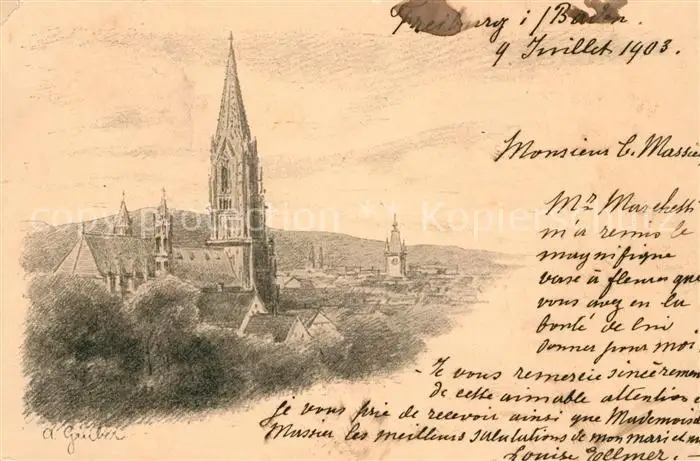 Freiburg i/Baden.
9 Juillet 1903.
Monsieur C. Massie
Mr. Marchetti
m'a remis le
magnifique
vase à fleurs que
vous avez eu la
bonté de lui
donner pour moi
Je vous remercie sincèrement
de cette aimable attention
je vous prie de recevoir ainsi que Mademoise
Massier les meilleurs salutations de mon mari et
Louise
A. Gauber
Copyright * Kiper-Scherer